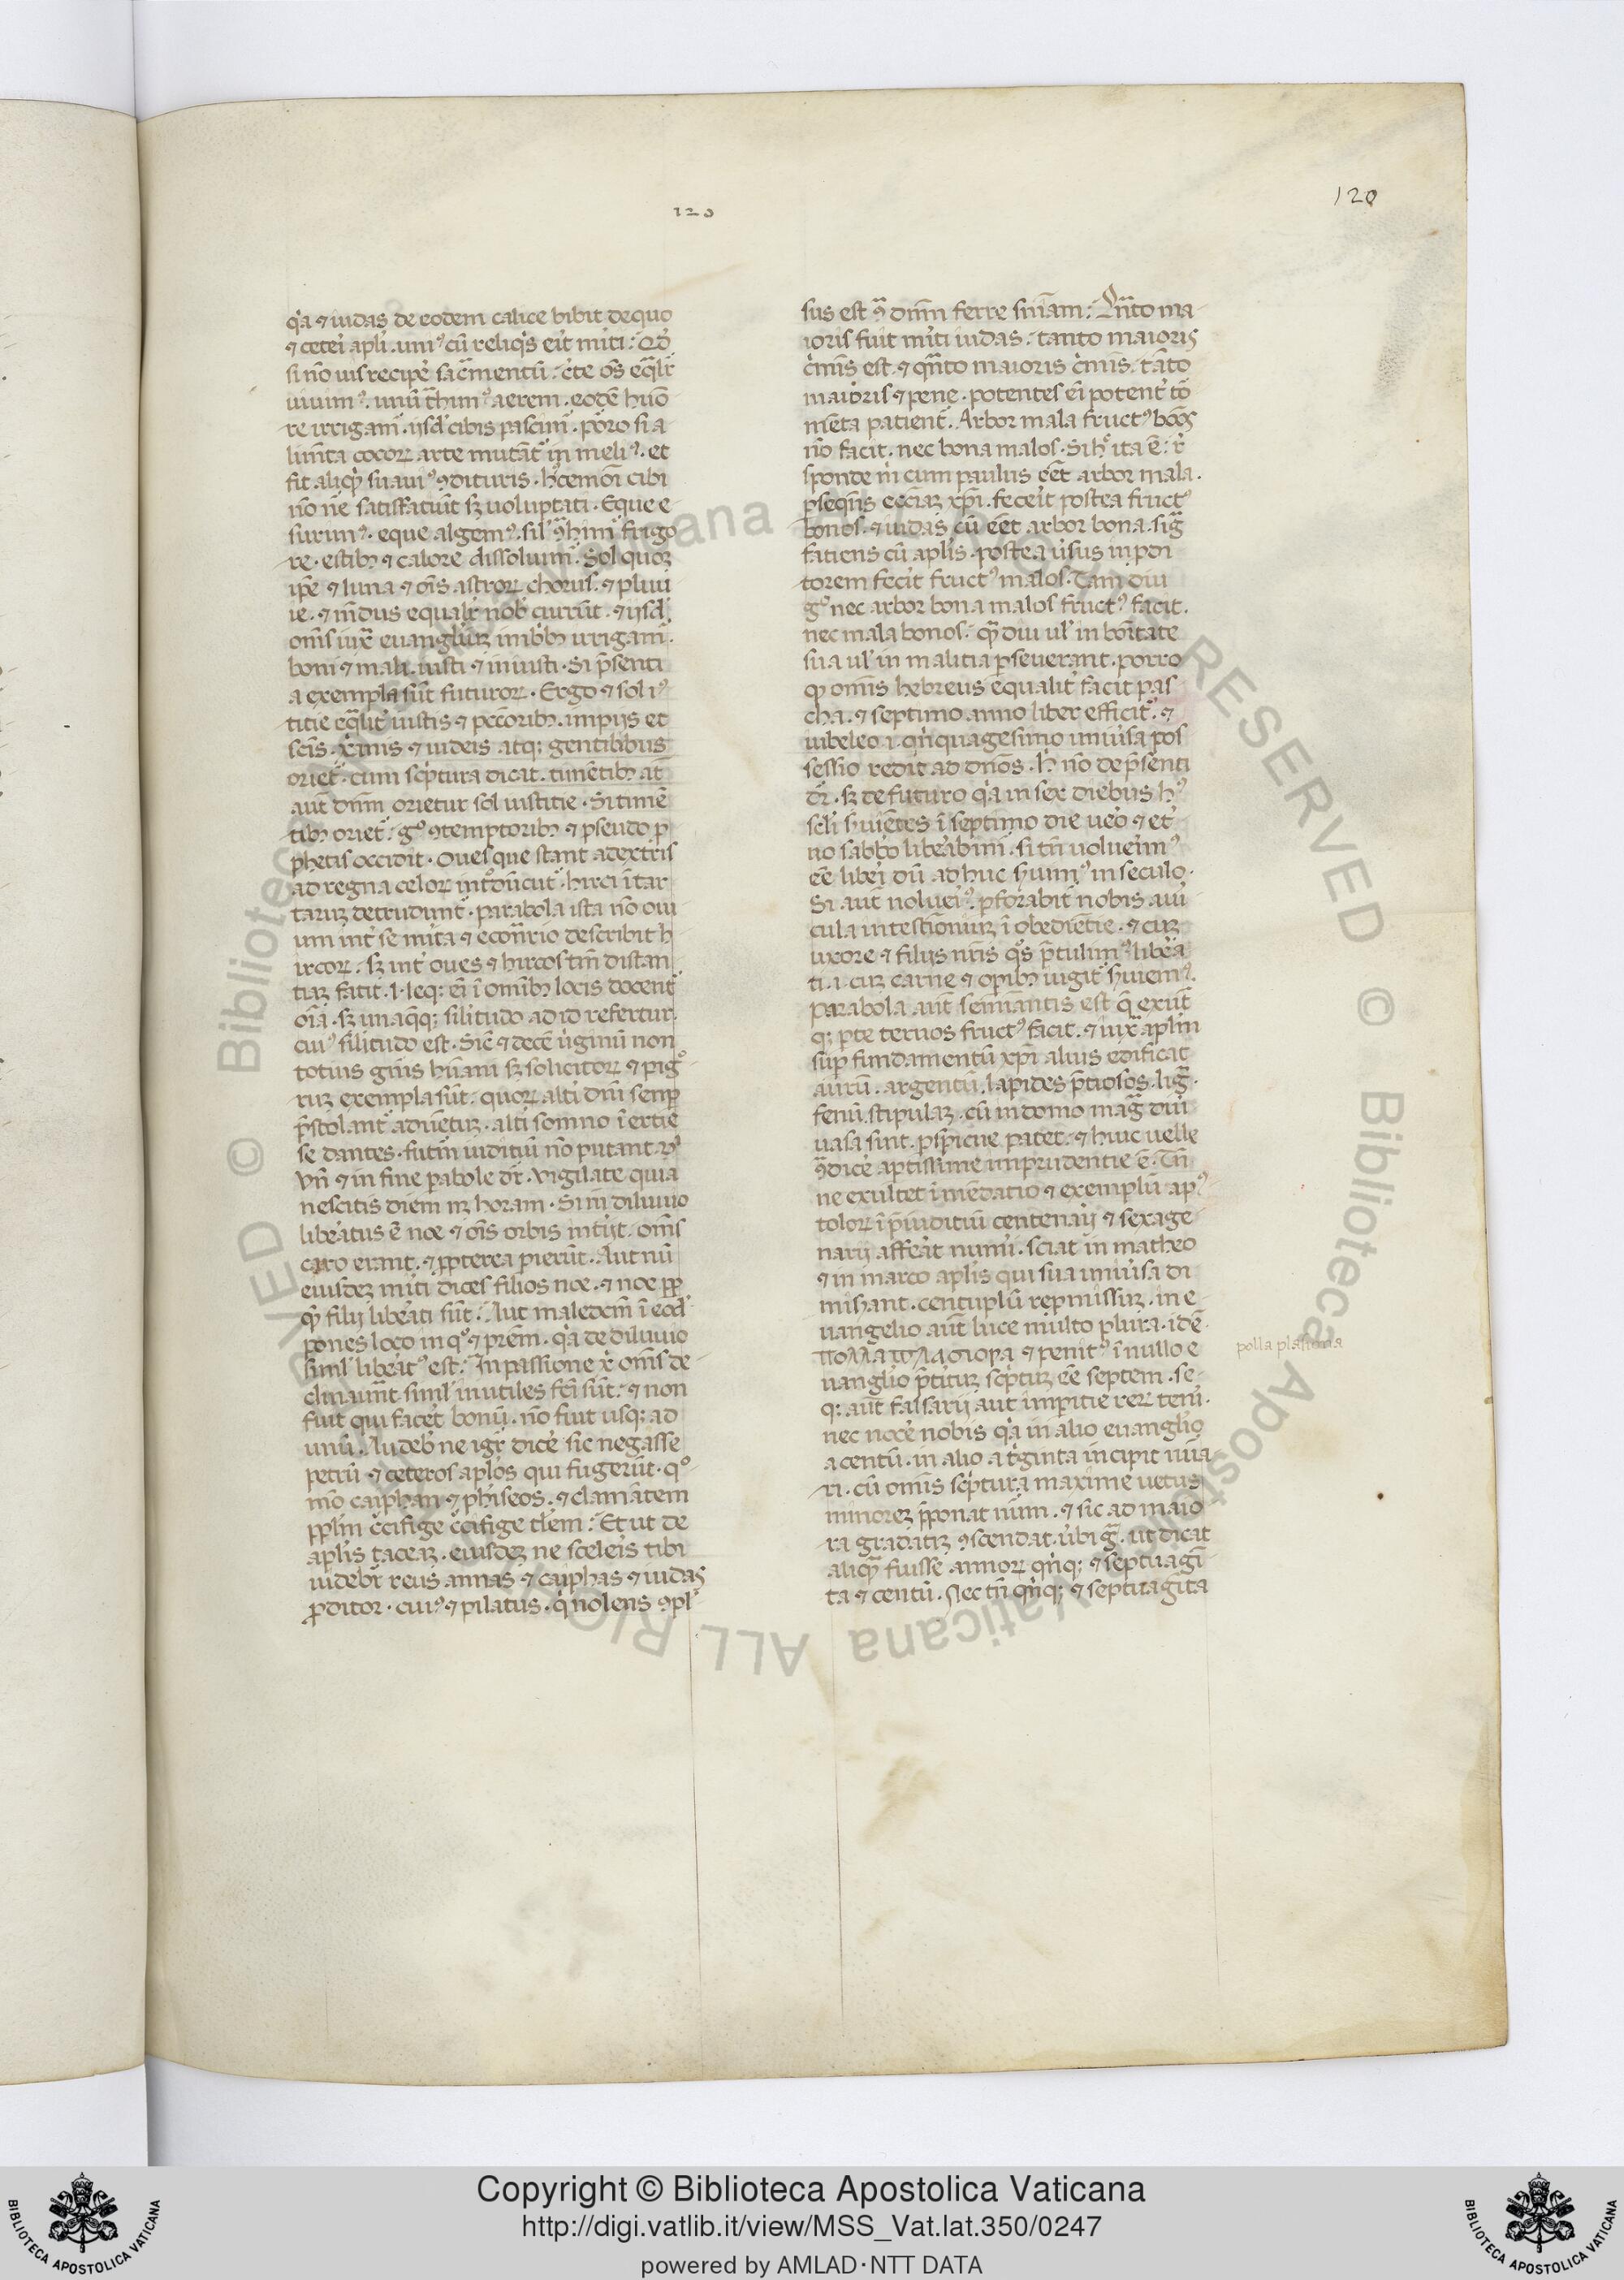 120
120
qa ⁊ iudas de eodem calice bibit de quo
⁊ ceteri apli. uniꝰ cū reliqis eit miti: Qd
si nō uis recipe sacmentū. cte os eqlr
uiuimꝰ. unū thimꝰ aerem. eodē humo
re irrigam. iisd cibis pascim. poro si a
limta cocoꝝ arte mutat in meliꝰ. et
fit aliqd suauiꝰ ꝯdituris. hcemoi cibi
nō ne satisfatiut sꝫ uoluptati. Eque e
surimꝰ. eque algemꝰ. sil ꝯhim frigo
re. estibꝫ ⁊ calore dissoluim. Sol quoqꝫ
ipe ⁊ luna ⁊ ois astroꝝ chorus. ⁊ pluui
ie. ⁊ mdus equalr nob currut. ⁊ iisd
oms iux euangliuꝫ imbibꝫ irrigam.
boni ⁊ mali. iusti ⁊ iniusti. Si psenti
a exempla sut futuroꝝ. Ergo ⁊ sol iꝰ
titie eqlit iustis ⁊ pccoribꝫ. impiis et
scis. xpinis ⁊ iudeis atqꝫ gentilibus
oriet. cum scptura dicat. timētibꝫ at
aut dnm orietur sol iustitie. Si timē
tibꝫ oriet. gꝰ ꝯtemptoribꝫ ⁊ pseudo p
phetis occidit. Oues que stant adextris
ad regna celoꝝ introducut. hirci i tar
taruꝫ detrudunt. parabola ista nō oui
um int se mita ⁊ econrio describit h
ircoꝝ. sꝫ int oues ⁊ hircos tm distan
tiaꝫ facit. 1. leqꝫ ei i omibꝫ locis docent
oia. sꝫ unaqqꝫ silitudo ad id refertur.
cuiꝰ silitudo est. Sic ⁊ decē uginū non
totius gnis hūani sꝫ solicitoꝝ ⁊ pig
ruꝫ exempla sut: quoꝝ alti dni semp
pstolant aduētuꝫ. alti somno i ertie
se dantes. futm iuditiū nō putant. vꝰ
vn ⁊ in fine pabole dr. vigilate quia
nescitis diem nꝫ horam. Si in diluuio
libeatus ē noe ⁊ ois orbis intiit. oms
caro erant. ⁊ ppterea pierūt. Aut nū
eiusdeꝫ miti dices filios noe. ⁊ noe pp
qm filii libeati sūt: Aut maledcm i eod
pones loco in qꝰ ⁊ prem. qa de diluuio
siml libeatꝰ est: In passione x oms de
clinauut siml inutiles fci sūt: ⁊ non
fuit qui facet bonū. nō fuit usqꝫ ad
unū. Audeb ne igr dice sic negasse
petrū ⁊ ceteros aplos qui fugerūt. qꝰ
mō caiphan ⁊ phiseos. ⁊ clamātem
pplm ccifige ccifige tlem: Et ut de
aplis taceaꝫ. eiusdeꝫ ne sceleis tibi
uidebr reus annas ⁊ caiphas ⁊ iudas
pditor. cuiꝰ ⁊ pilatus. q nolens ꝯpl
sus est ꝯ dnm ferre sniam: Qnto ma
ioris fuit miti iudas: tanto maioris
cmis est. ⁊ qnto maioris cmis. tāto
maioris ⁊ pene. potentes ei potent to
mēta patient. Arbor mala fructꝰ bōos
nō facit. nec bona malos. Si hꝰ ita ē. r
sponde m cum paulus eet arbor mala.
pseqns eccliaꝫ xpi. feceit postea fructꝰ
bonos. ⁊ iudas cū eet arbor bona. sig
fatiens cū aplis. postea usus in pdi
torem fecit fructꝰ malos. Tam diu
gꝰ nec arbor bona malos fructꝰ facit.
nec mala bonos. qdiu ul in bonitate
sua ul in malitia pseuerant. porro
qd omis hebreus equalit facit pas
cha. ⁊ septimo anno liber efficit. ⁊
iubeleo .i. qnquagesimo uniusa pos
sessio redit ad dnos. h nō de psenti
dr. sꝫ de futuro qa in sex diebus hꝰ
scli suiētes i septimo die ueo ⁊ et
no sabbo libeabim. si tn uoluerimꝰ
eē libei dū adhuc sumꝰ in seculo.
Si aut noluerꝰ. pforabit nobis aui
cula in testioniuꝫ i obediētie. ⁊ cuꝫ
uxore ⁊ filiis nris qs ptulimꝰ libea
ti .i. cuꝫ carne ⁊ opibꝫ iugit suiemꝰ.
Parabola aut seminantis est q exut
qꝫ pte ternos fructꝰ facit. ⁊ iux aplm
sup fundamentū xpi alius edificat
aurū. argentū. lapides ptiosos. lig.
fenū. stipulaꝫ. cū in domo mag diui
uasa sint. pspicue patet. ⁊ huic uelle
ꝯdice aptissime imprudentie ē. Tn
ne exultet i mēdatio ⁊ exemplū apꝰ
toloꝝ i piuditiū centenarii ⁊ sexage
narii afferat numi. sciat in matheo
⁊ in marco aplis qui sua uniusa di
misant. centuplū repmissuꝫ. in e
uangelio aut luce multo plura. idē
πολλα πλασιονα ⁊ penitꝰ i nullo e
uanglio ptituꝫ scptuꝫ eē septem. se
qꝫ aut falsarii aut impitie reꝝ teni.
nec noce nobis qa in alio euanglio
a centū. in alio a tginta incipit nua
ri. cū omis scptura maxime uetus
minoreꝫ pponat num. ⁊ sic ad maio
ra gradatiꝫ ꝯscendat. ubi g. ut dicat
aliqs fuisse annoꝝ qnqꝫ ⁊ septuagi
ta ⁊ centū. Nec tn qnqꝫ ⁊ septuaginta
polla plasiona
Copyright © Biblioteca Apostolica Vaticana
http://digi.vatlib.it/view/MSS_Vat.lat.350/0247
powered by AMLAD·NTT DATA
BIBLIOTECA APOSTOLICA VATICANA
BIBLIOTECA APOSTOLICA VATICANA